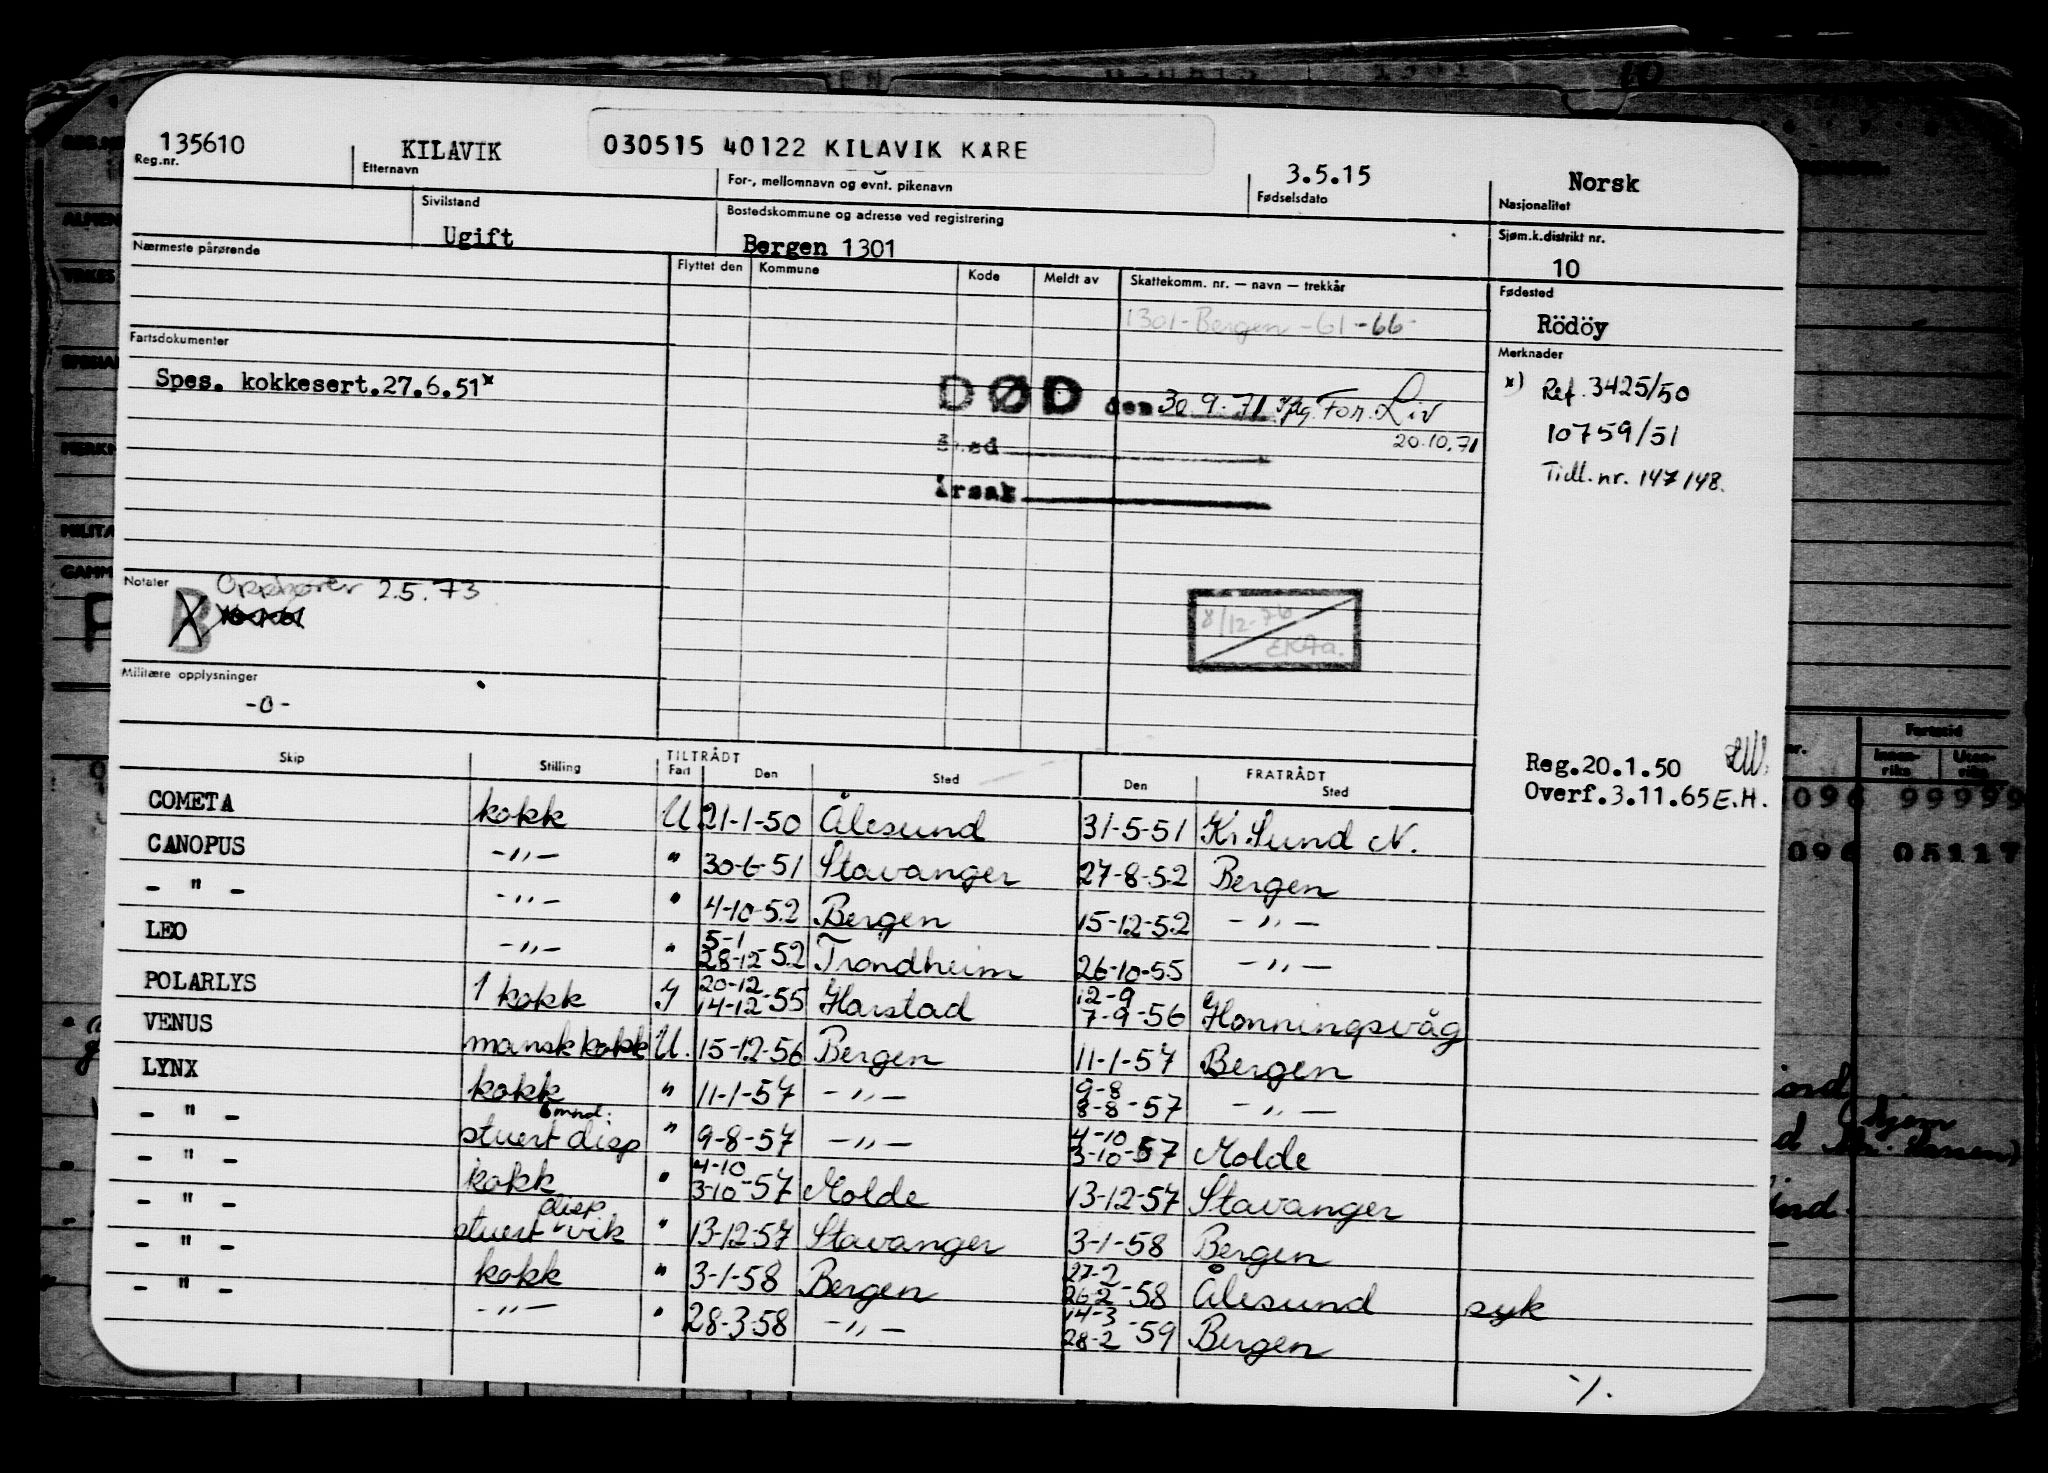 135610 KILAVIK 030515 40122 KILAVIK KÅRE 3.5.15 Norsk
Reg.nr. Etternavn For-, mellomnavn og evnt. pikenavn Fødselsdato Nasjonalitet
Sivilstand Bostedskommune og adresse ved registrering Sjøm.k.distrikt nr.
Ugift Bergen 1301 10
Nærmeste pårørende Flyttet den Kommune Kode Meldt av Skattekomm. nr. — navn — trekkår Fødested
1301-Bergen-61-66 Rödöy
Fartsdokumenter Merknader
Spes. kokkesert.27.6.51* DØD den 30.9.71 For. Liv
20.10.71
Sted
Årsak
*) Ref. 3425/50
10759/51
Tidl.nr. 147148.
Notater Opphører 2.5.73
B
8/12-76
Militære opplysninger
-0-
Reg.20.1.50
Overf.3.11.65 E.H.
TILTRÅDT FRATRÅDT
Skip Stilling Fart Den Sted Den Sted
COMETA kokk U 21-1-50 Ålesund 31-5-51 Kr.Sund N.
CANOPUS -"- " 30-6-51 Stavanger 27-8-52 Bergen
- " - -"- " 4-10-52 Bergen 15-12-52 -"-
LEO -"- " 5-1 28-12-52 Trondheim 26-10-55 -"-
POLARLYS 1 kokk I 20-12 14-12-55 Harstad 12-9 7-9-56 Honningsvåg
VENUS mansk kokk U. 15-12-56 Bergen 11-1-57 Bergen
LYNX kokk " 11-1-57 -"- 9-8 8-8-57 -"-
- " - stuert 6 mnd. disp " 9-8-57 -"- 4-10 3-10-57 Molde
- " - kokk " 4-10 3-10-57 Molde 13-12-57 Stavanger
- " - stuert disp vik " 13-12-57 Stavanger 3-1-58 Bergen
- " - kokk " 3-1-58 Bergen 27-2 26-2-58 Ålesund syk
- " - -"- " 28-3-58 -"- 14-3 28-2-59 Bergen
./.